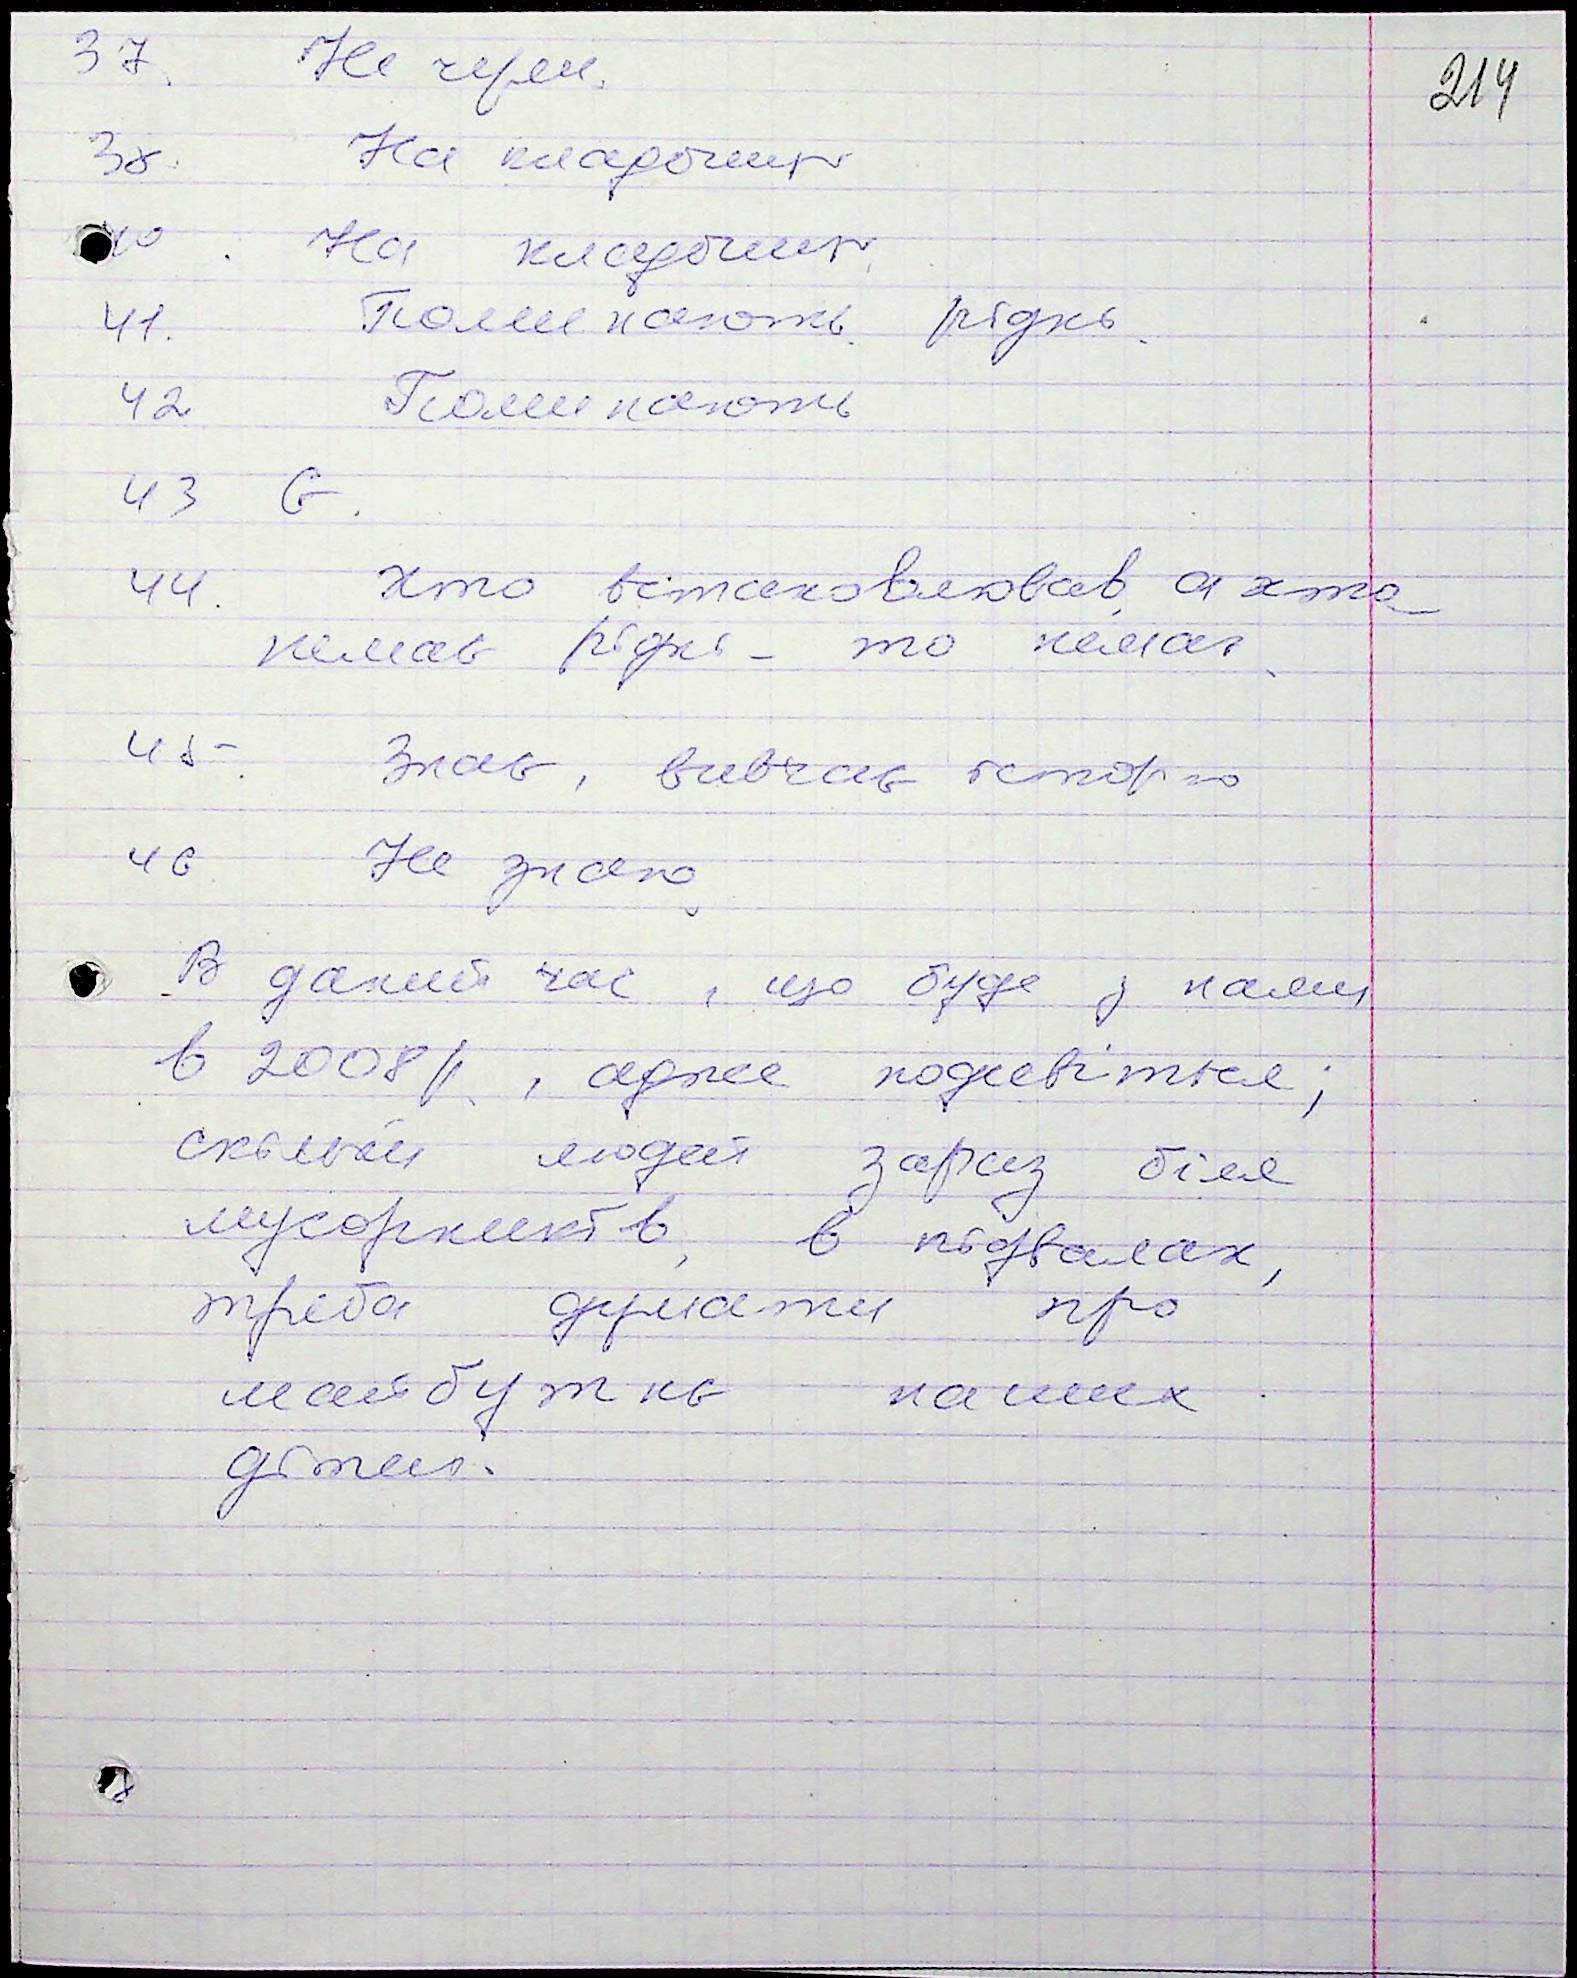 214
37. Не чули.
38. На кладбищі
40. На кладбищі.
41. Поминають рідні.
42 Поминають
43 Є.
44. Хто встановлював, а хто
немає рідні - то немає.
45. Знає, вивчає історію
46 Не знаю
В даний час, що буде з нами
в 2008 р., адже подивіться;
скільки людей зараз біля
мусорників, в підвалах,
треба думати про
майбутнє наших
дітей.